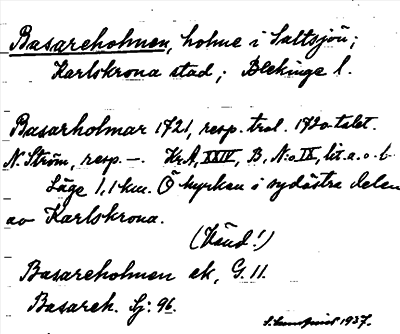 Basareholmen, holme i Saltsjön;
Karlskrona stad; Blekinge l.
Basarholmar 1721, resp. trol. 1720-talet.
N. Ström, resp. —. Kr.A, XXIV, B, N:o IX, lit. a. o. b.
Läge 1,1 km. Ö kyrkan i sydöstra delen
av Karlskrona.
(Vänd!)
Basareholmen ek, G. 11.
Basareh. Sj: 96.
1937.